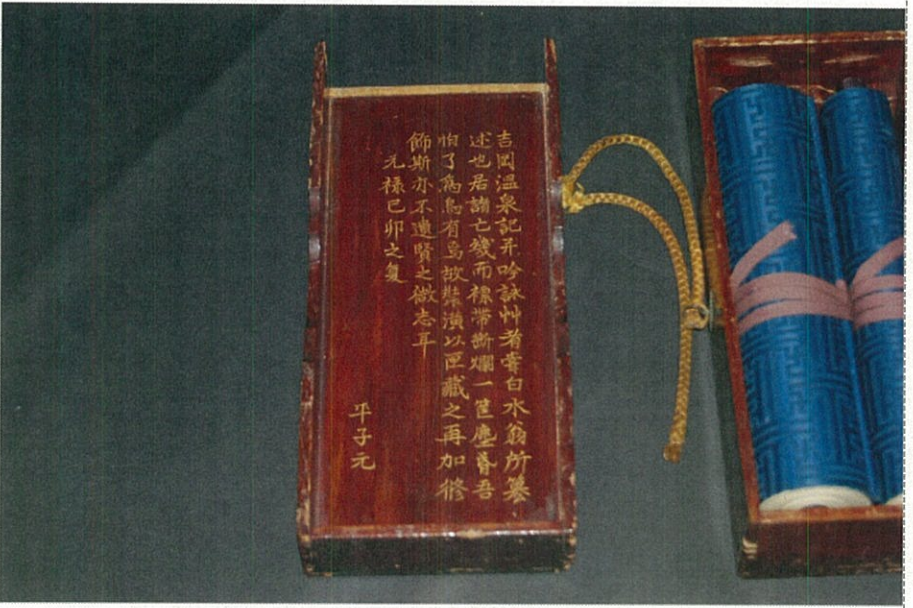 吉岡温泉記并吟詠艸者嘗白水翁所纂
述也居諸亡幾而褾帯断爛一筐塵昏吾
怕了為烏有焉故装潢以匣蔵之再加修
飾斯亦不遺賢之微志耳
元禄己卯之夏
平子元